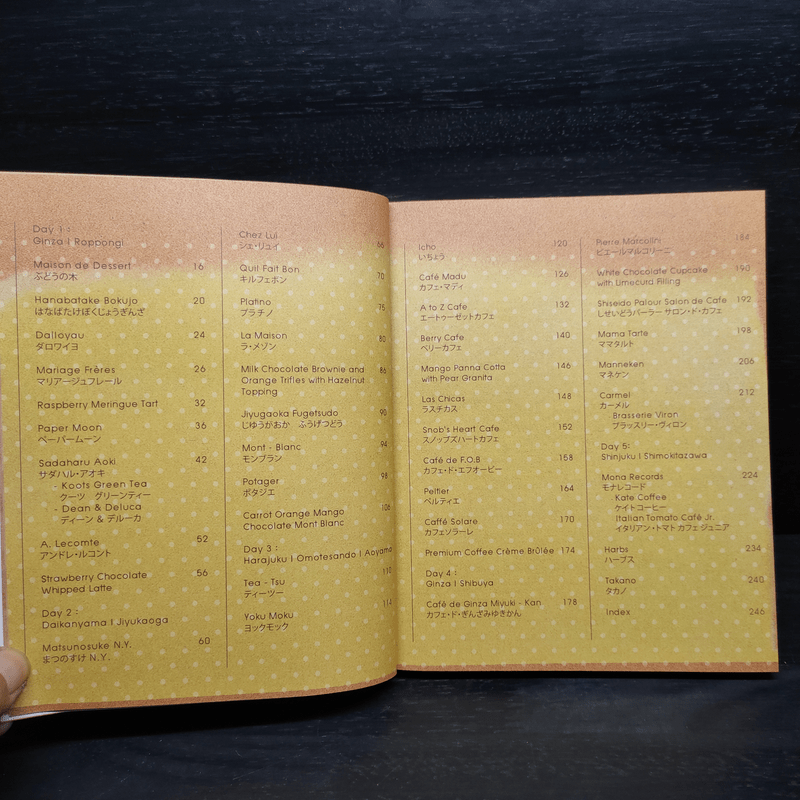 Day 1 :
Ginza I Roppongi
Maison de Dessert 16
ぶどうの木
Hanabatake Bokujo 20
はなばたけぼくじょうぎんざ
Dalloyau 24
ダロワイヨ
Mariage Fréres 26
マリアージュフレール
Raspberry Meringue Tart 32
Paper Moon 36
ペーパームーン
Sadaharu Aoki 42
サダハル・アオキ
- Koots Green Tea
クーツ グリーンティー
- Dean & Deluca
ディーン & デルーカ
A. Lecomte 52
アンドレ・ルコント
Strawberry Chocolate 56
Whipped Latte
Day 2 :
Daikanyama I Jiyukaoga
Matsunosuke N.Y. 60
まつのすけ N.Y.
Chez Lui 66
シェ・リュイ
Quil Fait Bon 70
キルフェボン
Platino 75
プラチノ
La Maison 80
ラ・メゾン
Milk Chocolate Brownie and 86
Orange Trifles with Hazelnut
Topping
Jiyugaoka Fugetsudo 90
じゆうがおか ふうげつどう
Mont - Blanc 94
モンブラン
Potager 98
ポタジエ
Carrot Orange Mango 106
Chocolate Mont Blanc
Day 3 :
Harajuku I Omotesando I Aoyama
Tea - Tsu 110
ティーツー
Yoku Moku 114
ヨックモック
Icho 120
いちょう
Café Madu 126
カフェ・マディ
A to Z Cafe 132
エートゥーゼットカフェ
Berry Cafe 140
ベリーカフェ
Mango Panna Cotta 146
with Pear Granita
Las Chicas 148
ラスチカス
Snob's Heart Cafe 152
スノッブズハートカフェ
Café de F.O.B 158
カフェ・ド・エフオービー
Peltier 164
ペルティエ
Caffé Solare 170
カフェソラーレ
Premium Coffee Crème Brûlée 174
Day 4 :
Ginza I Shibuya
Café de Ginza Miyuki - Kan 178
カフェ・ド・ぎんざみゆきかん
Pierre Marcolini 184
ピエールマルコリーニ
White Chocolate Cupcake 190
with Limecurd Filling
Shiseido Palour Salon de Cafe 192
しせいどうパーラー サロン・ド・カフェ
Mama Tarte 198
ママタルト
Manneken 206
マネケン
Carmel 212
カーメル
Brasserie Viron
ブラッスリー・ヴィロン
Day 5:
Shinjuku I Shimokitazawa
Mona Records 224
モナレコード
Kate Coffee
ケイトコーヒー
Italian Tomato Café Jr.
イタリアン・トマト カフェ ジュニア
Harbs 234
ハーブス
Takano 240
タカノ
Index 246